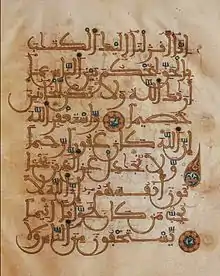 إنا أنزلنا إليك الكتب
بالحق لتحكم بين الناس بما
أريك الله ولا تكن للخائنين
خصيما واستغفر الله
إن الله كان غفورا رحيما
ولا تجدل عن الذين يختا
نون أنفسهم إن الله لا
يحب من كان خوانا أثيما
يستخفون من الناس و